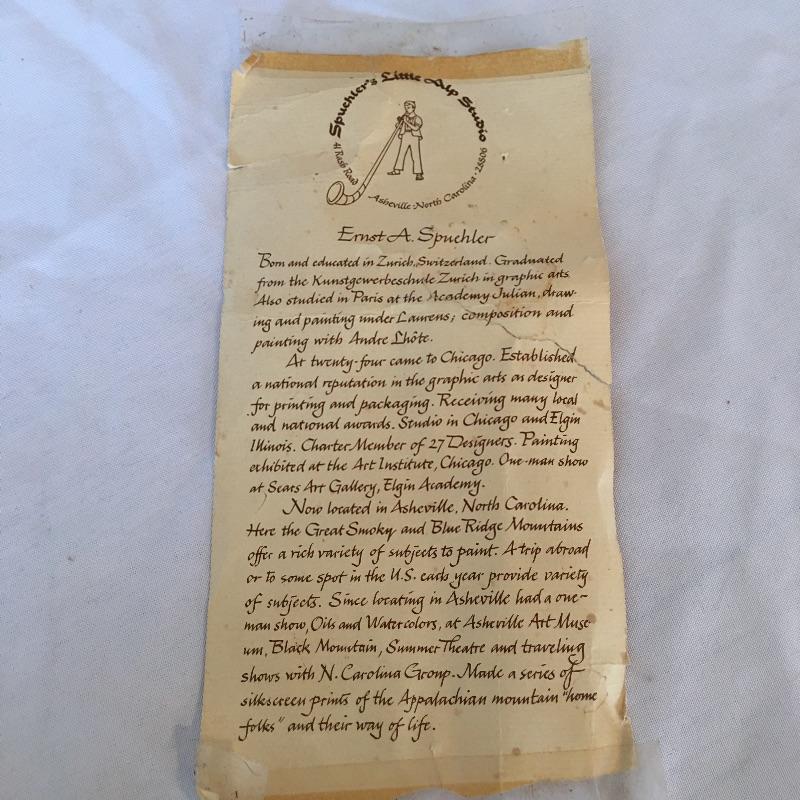 Spuehler's Little Alp Studio
41 Rash Road
Asheville · North Carolina · 28806
Ernst A. Spuehler
Born and educated in Zurich, Switzerland. Graduated
from the Kunstgewerbeschule Zurich in graphic arts.
Also studied in Paris at the Academy Julian, draw-
ing and painting under Laurens; composition and
painting with Andre Lhôte.
At twenty-four came to Chicago. Established
a national reputation in the graphic arts as designer
for printing and packaging. Receiving many local
and national awards. Studio in Chicago and Elgin
Illinois. Charter Member of 27 Designers. Painting
exhibited at the Art Institute, Chicago. One-man show
at Sears Art Gallery, Elgin Academy.
Now located in Asheville, North Carolina.
Here the Great Smoky and Blue Ridge Mountains
offer a rich variety of subjects to paint. A trip abroad
or to some spot in the U.S. each year provide variety
of subjects. Since locating in Asheville had a one-
man show, Oils and Watercolors, at Asheville Art Muse-
um, Black Mountain, Summer Theatre and traveling
shows with N. Carolina Group. Made a series of
silkscreen prints of the Appalachian mountain "home
folks" and their way of life.